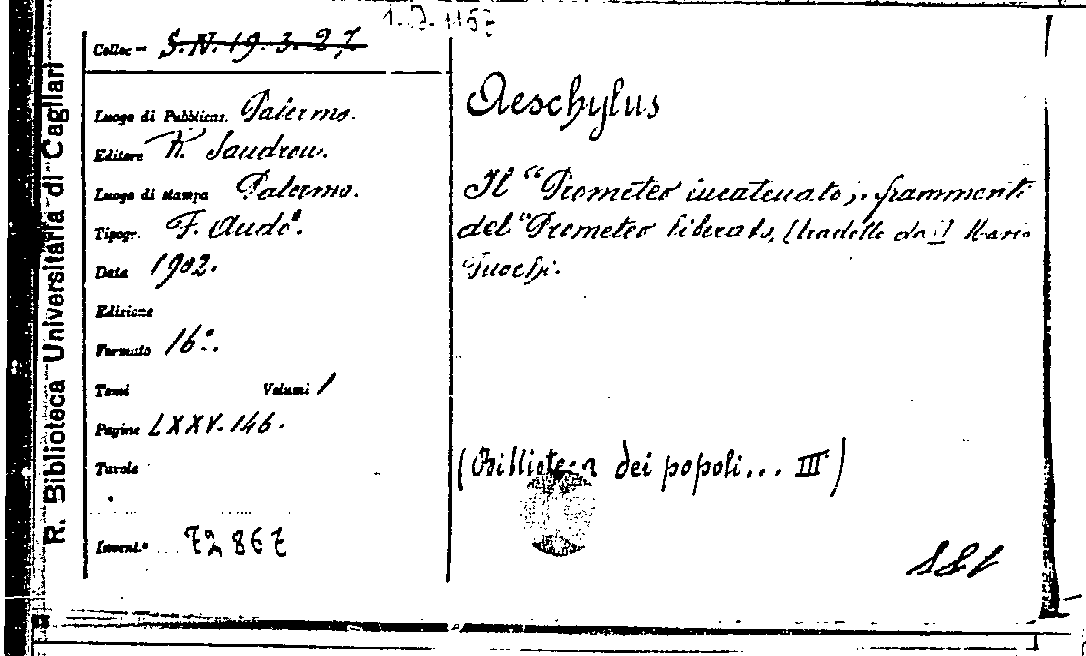 R. Biblioteca Universitaria di Cagliari
Colloc=S.N.19.3.27
Luogo di Pubblicaz. Palermo.
Editore R. Sandron.
Luogo di stampa Palermo.
Tipogr. F. Andò.
Data 1902.
Edizione
Formato 16°.
Tomi Volumi 1
Pagine LXXV.146.
Tavole
Invent.° 72867
Aeschylus
Il "Prometeo incatenato, frammenti
del "Prometeo liberato, (tradotto da) Mario
Fuochi.
(Biblioteca dei popoli... III)